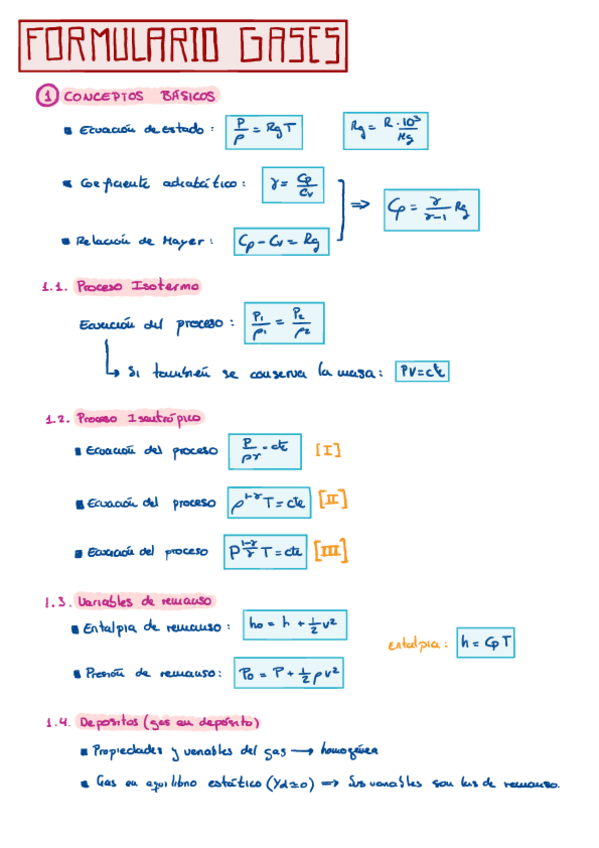 FORMULARIO GASES
1 CONCEPTOS BÁSICOS
Ecuación de estado: P/ρ = Rg T Rg = R · 10³/Mg
Coeficiente adiabático: γ = Cp/Cv ⇒ Cp = γ/(γ-1) Rg
Relación de Mayer: Cp - Cv = Rg
1.1. Proceso Isotermo
Ecuación del proceso: P₁/ρ₁ = P₂/ρ₂
Si también se conserva la masa: PV=cte
1.2. Proceso Isentrópico
Ecuación del proceso P/ρ^γ = cte [I]
Ecuación del proceso ρ^(1-γ) T = cte [II]
Ecuación del proceso P^((1-γ)/γ) T = cte [III]
1.3. Variables de remanso
Entalpia de remanso: h₀ = h + ½ v² entalpia: h = Cp T
Presión de remanso: P₀ = P + ½ ρv²
1.4. Depositos (gas en depósito)
Propiedades y variables del gas → homogénea
Gas en equilibrio estático (Vd≃0) → Sus variables son las de remanso.